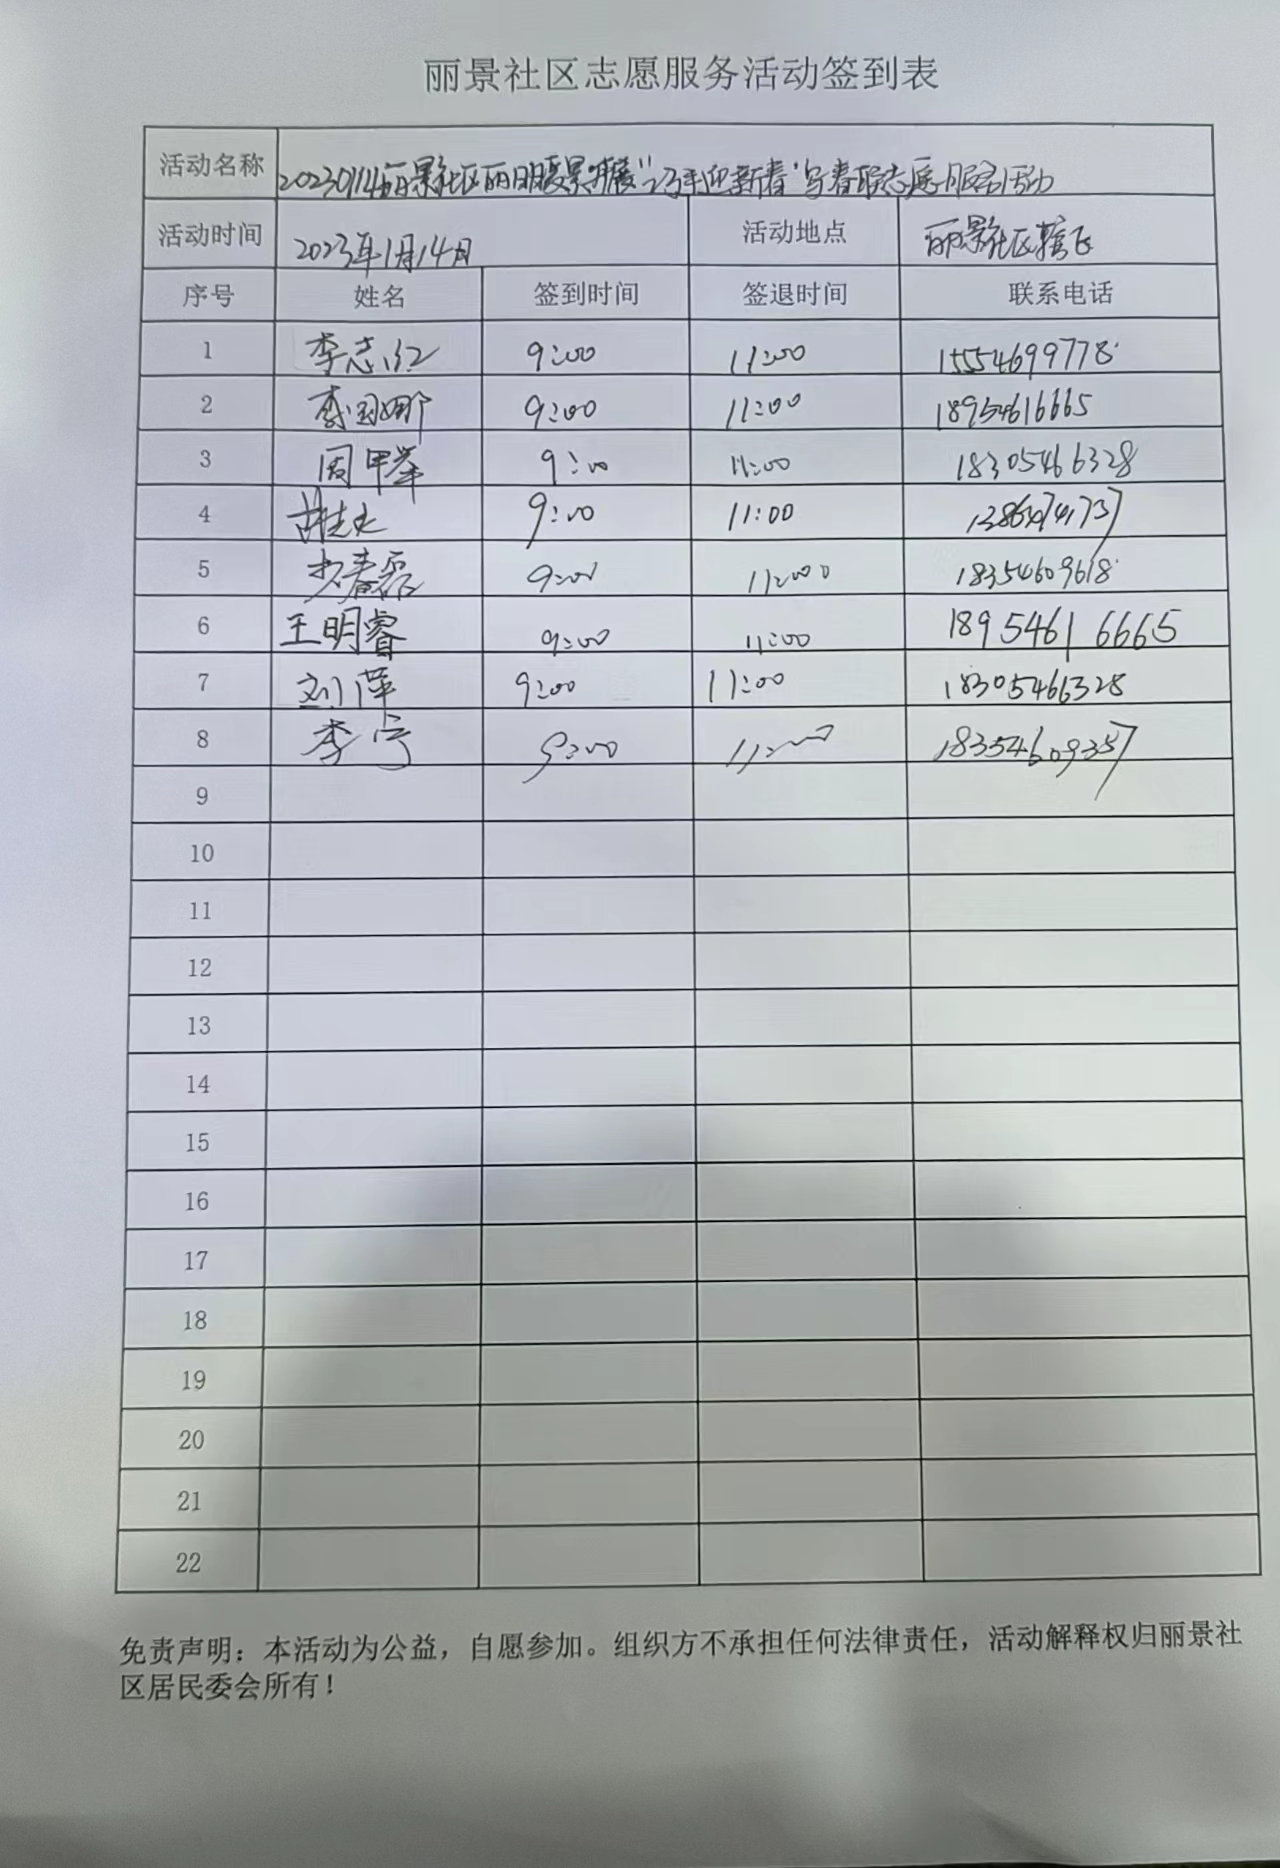 丽景社区志愿服务活动签到表
活动名称 20230114丽景社区丽日暖景开展"迎新春"写春联志愿服务活动
活动时间 2023年1月14日 活动地点 丽景社区辖区
序号 姓名 签到时间 签退时间 联系电话
1 李志红 9:00 11:00 15554699778
2 李国娜 9:00 11:00 18954616665
3 周甲举 9:00 11:00 18305466328
4 9:00 11:00
5 春磊 9:00 11:00 18354609618
6 王明睿 9:00 11:00 18954616665
7 刘萍 9:00 11:00 18305466328
8 李宁 9:00 11:00 18354609357
9
10
11
12
13
14
15
16
17
18
19
20
21
22
免责声明：本活动为公益，自愿参加。组织方不承担任何法律责任，活动解释权归丽景社
区居民委会所有！